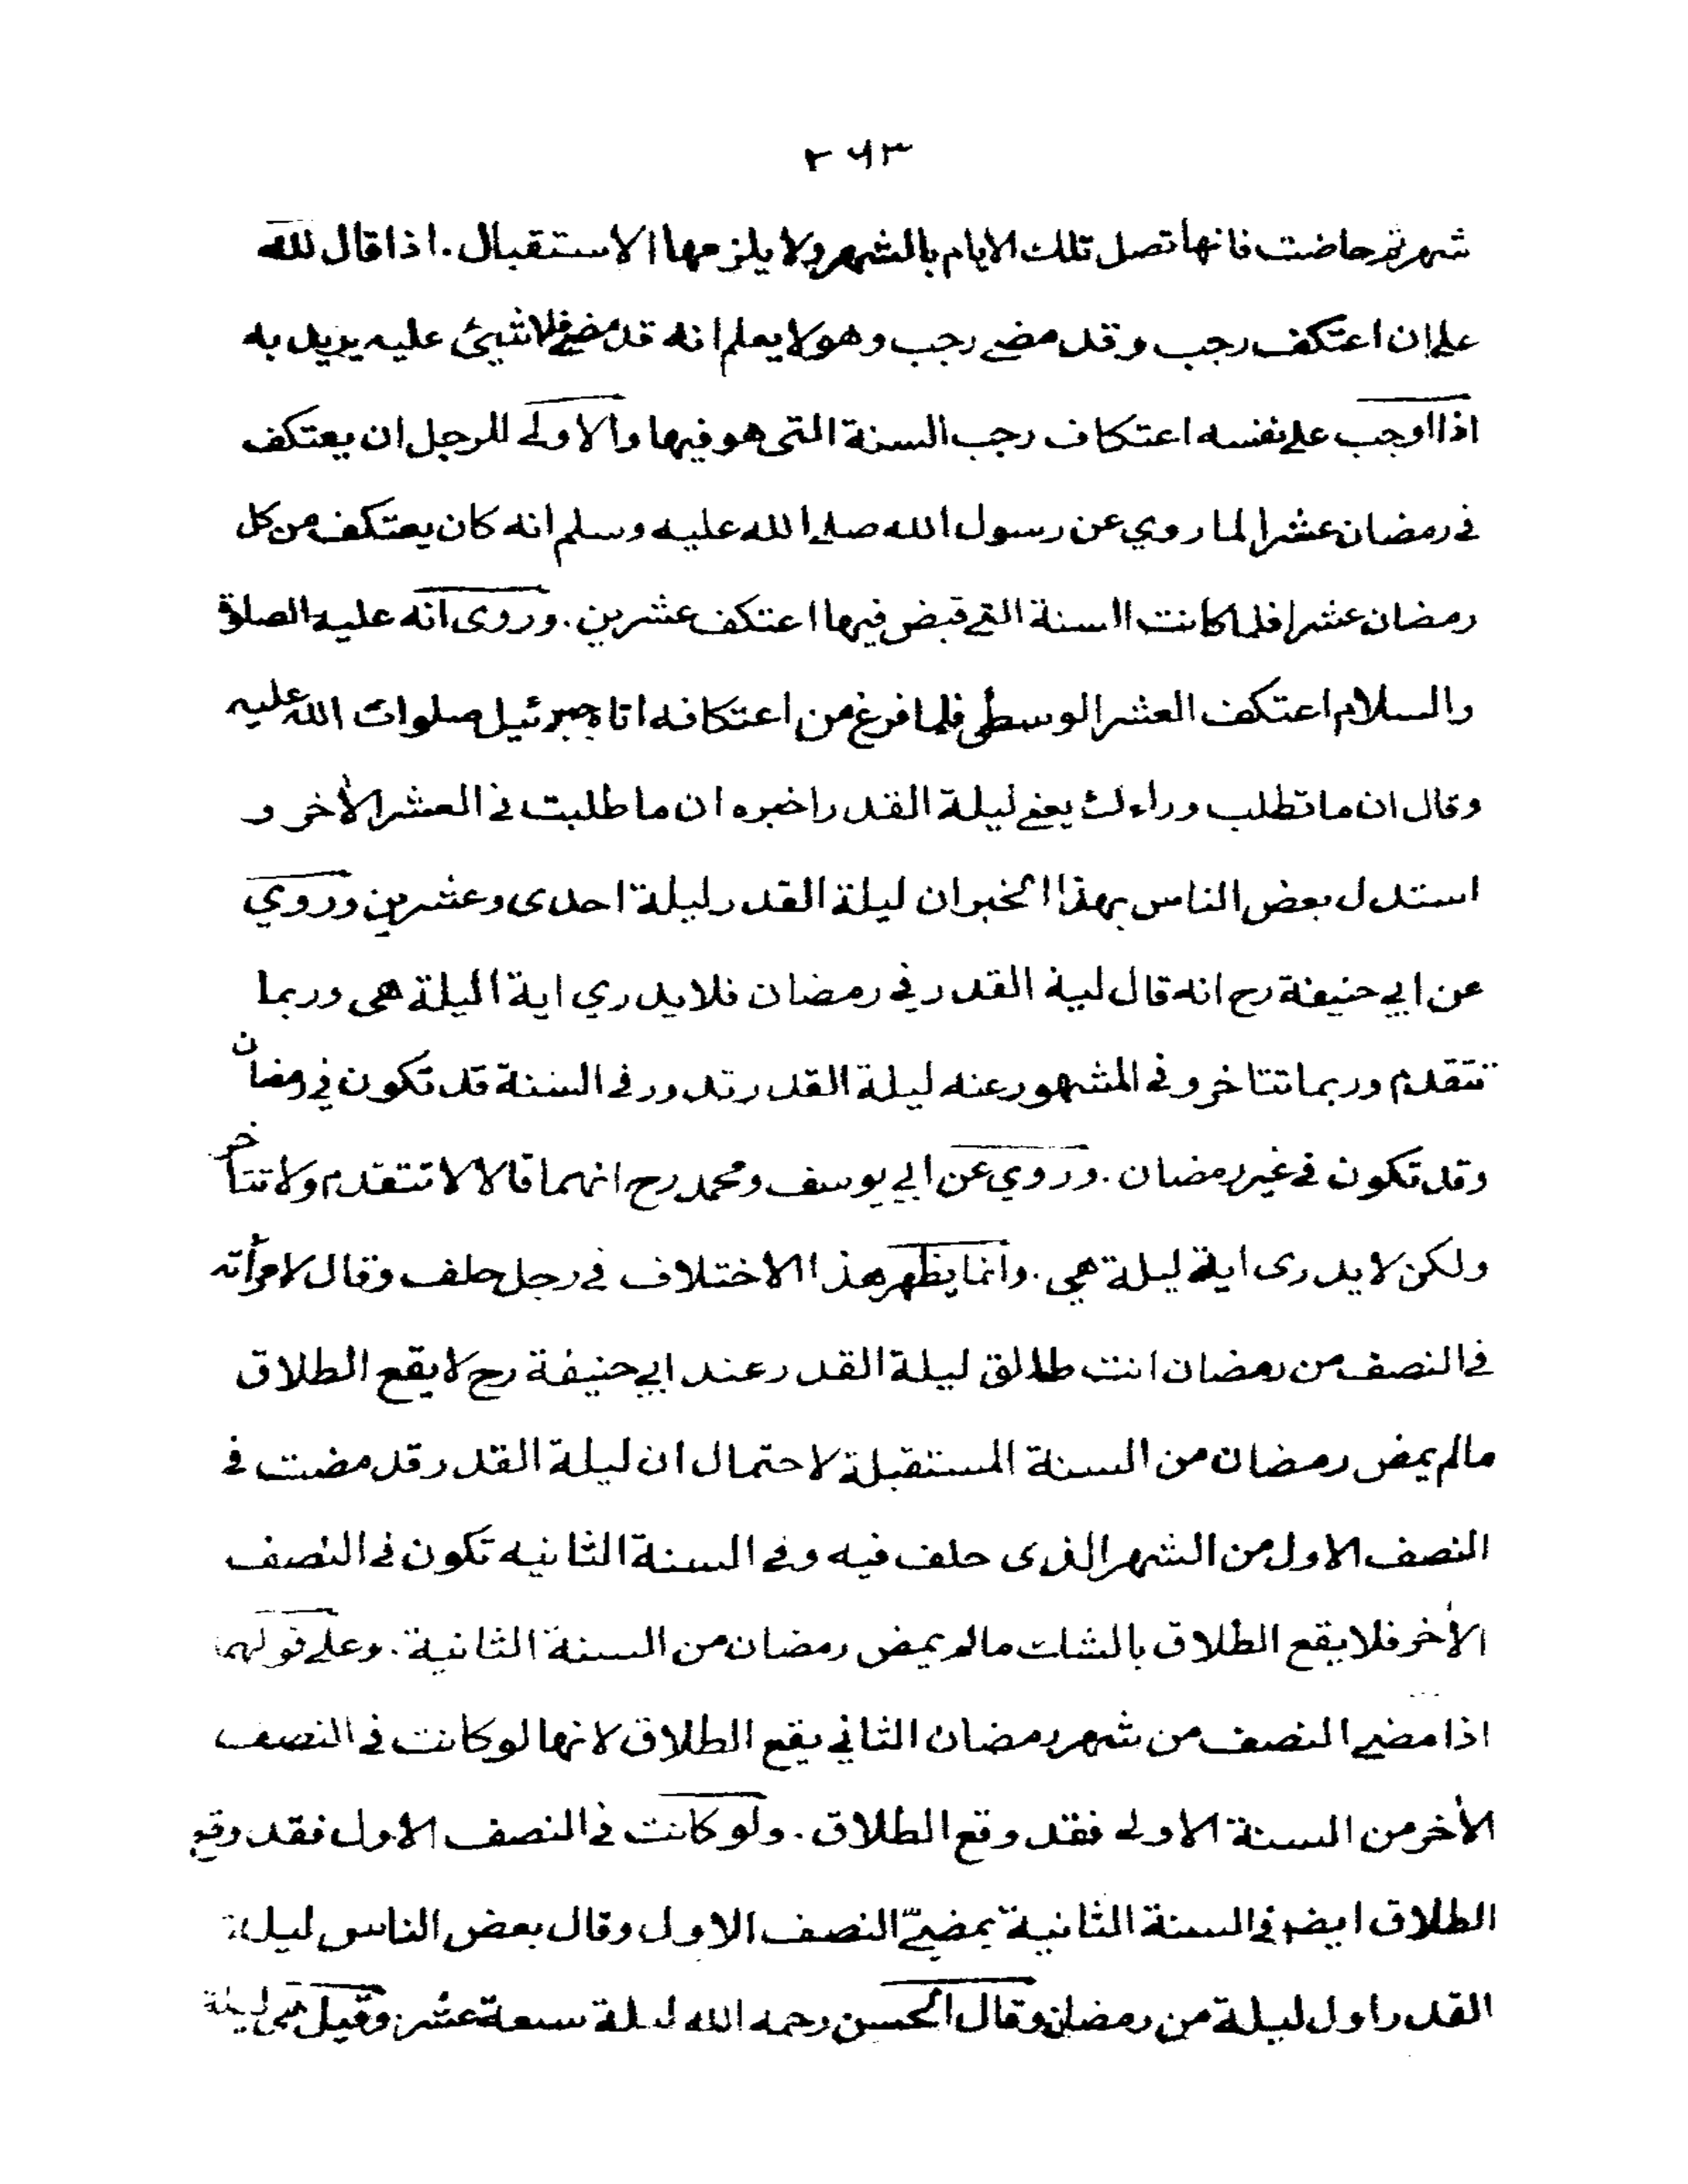 ٢٦٣
شهر ثم حاضت فانها تصل تلك الايام بالشهر ولا يلزمها الاستقبال . اذا قال لله
على ان اعتكف رجب وقد مضى رجب وهو لا يعلم انه قد مضى فلا شيئ عليه يريد به
اذا اوجب على نفسه اعتكاف رجب السنة التى هو فيها والاولى للرجل ان يعتكف
فى رمضان عشرا لما روي عن رسول الله صلى الله عليه وسلم انه كان يعتكف من كل
رمضان عشرا فلما كانت السنة التى قبض فيها اعتكف عشرين . وروى انه عليه الصلوة
والسلام اعتكف العشر الوسطى فلما فرغ من اعتكافه اتاه جبرئيل صلوات الله عليه
وقال ان ما تطلب وراءك يعنى ليلة القدر اخبره ان ما طلبت فى العشر الأخر و
استدل بعض الناس بهذا الخبر ان ليلة القدر ليلة احدى وعشرين وروي
عن ابي حنيفة رح انه قال لية القدر في رمضان فلا يدري اية اليلة هى وربما
تتقدم وربما تتاخر وفى المشهور عنه ليلة القدر تدور فى السنة قد تكون في رمضان
وقد تكون فى غير رمضان . وروي عن ابي يوسف ومحمد رح انهما قالا لا تتقدم ولا تتأخر
ولكن لا يدرى اية ليلة هي . وانما يظهر هذا الاختلاف فى رجل حلف وقال لامرأته
فى النصف من رمضان انت طالق ليلة القدر عند ابي حنيفة رح لا يقع الطلاق
مالم يمض رمضان من السنة المستقبلة لاحتمال ان ليلة القدر قد مضت فى
النصف الاول من الشهر الذى حلف فيه وفى السنة الثانيه تكون فى النصف
الأخر فلا يقع الطلاق بالشك مالم يمض رمضان من السنة الثانية . وعلى قولهما
اذا مضى النصف من شهر رمضان الثاني يقع الطلاق لانها لو كانت فى النصف
الأخر من السنة الاولى فقد وقع الطلاق . ولو كانت فى النصف الاول فقد وقع
الطلاق ايضا فى السنة الثانية بمضيّ النصف الاول وقال بعض الناس ليلة
القدر اول ليلة من رمضان وقال الحسن رحمه الله ليلة سبعة عشر وقيل هى ليلة